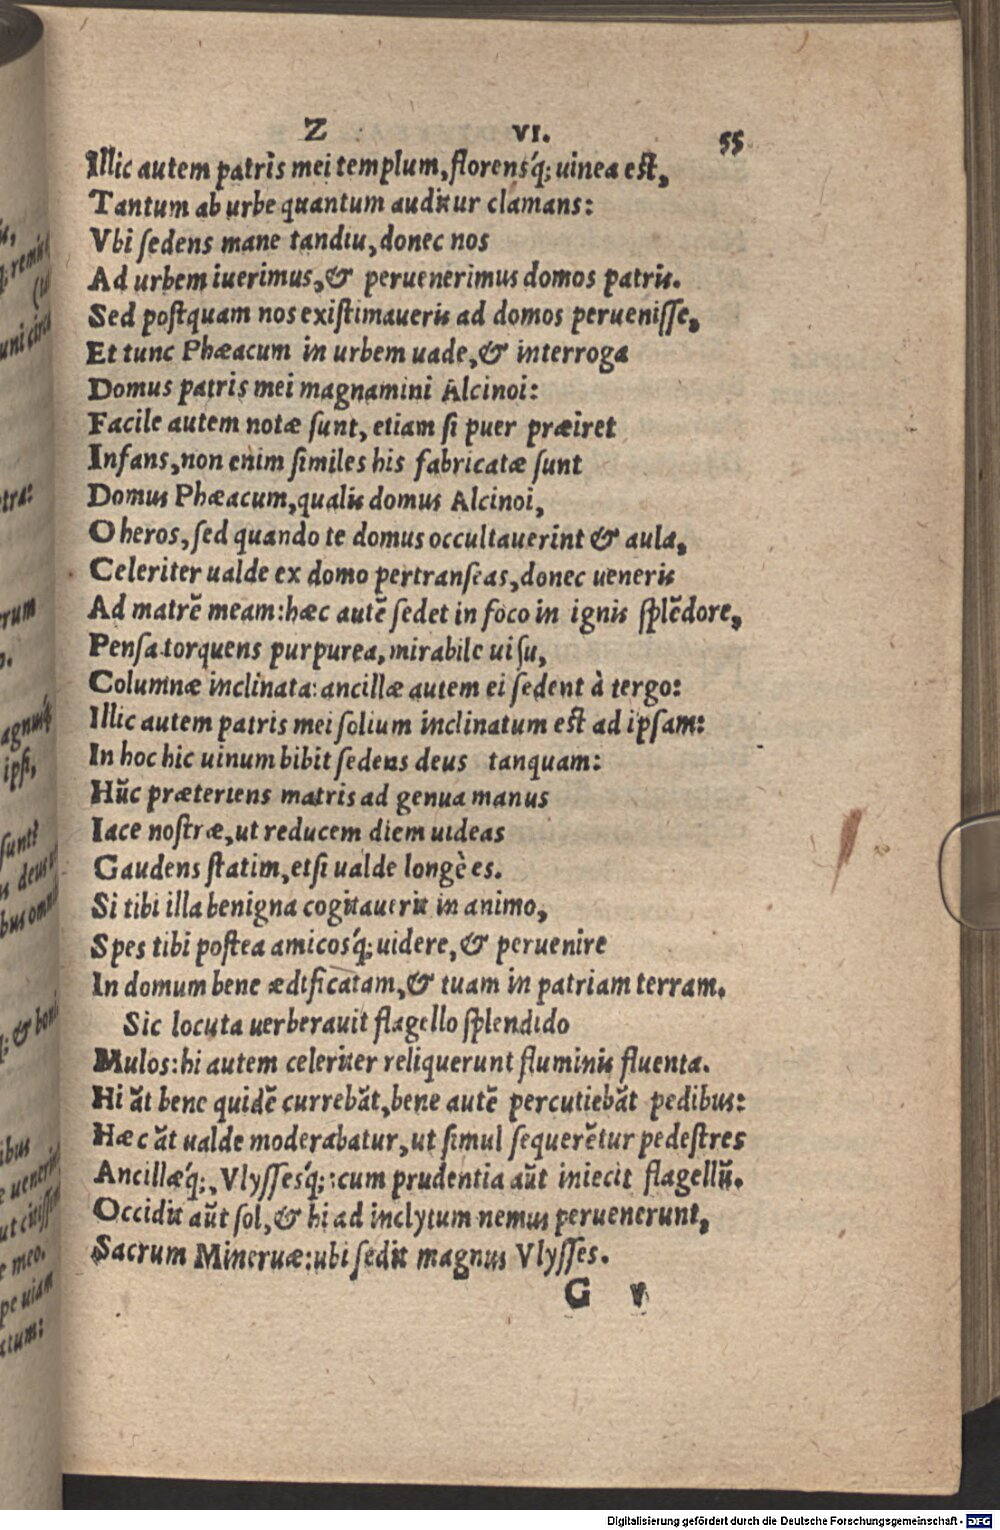 Z VI. 55
Illic autem patris mei templum, florensq́; uinea est,
Tantum ab urbe quantum auditur clamans:
Vbi sedens mane tandiu, donec nos
Ad urbem iuerimus, & peruenerimus domos patris.
Sed postquam nos existimaueris ad domos peruenisse,
Et tunc Phæacum in urbem uade, & interroga
Domus patris mei magnamini Alcinoi:
Facile autem notæ sunt, etiam si puer præiret
Infans, non enim similes his fabricatæ sunt
Domus Phæacum, qualis domus Alcinoi,
O heros, sed quando te domus occultauerint & aula,
Celeriter ualde ex domo pertranseas, donec ueneris
Ad matrē meam: hæc autē sedet in foco in ignis splēdore,
Pensa torquens purpurea, mirabile uisu,
Columnæ inclinata: ancillæ autem ei sedent à tergo:
Illic autem patris mei solium inclinatum est ad ipsam:
In hoc hic uinum bibit sedens deus tanquam:
Hūc præteriens matris ad genua manus
Iace nostræ, ut reducem diem uideas
Gaudens statim, etsi ualde longè es.
Si tibi illa benigna cogitauerit in animo,
Spes tibi postea amicosq́; uidere, & peruenire
In domum bene ædificatam, & tuam in patriam terram.
Sic locuta uerberauit flagello splendido
Mulos: hi autem celeriter reliquerunt fluminis fluenta.
Hi āt bene quidē currebāt, bene autē percutiebāt pedibus:
Hæc āt ualde moderabatur, ut simul sequerētur pedestres
Ancillæq́;, Vlyssesq́;: cum prudentia aūt iniecit flagellū.
Occidit aūt sol, & hi ad inclytum nemus peruenerunt,
Sacrum Mineruæ: ubi sedit magnus Vlysses.
G v
Digitalisierung gefördert durch die Deutsche Forschungsgemeinschaft - DFG